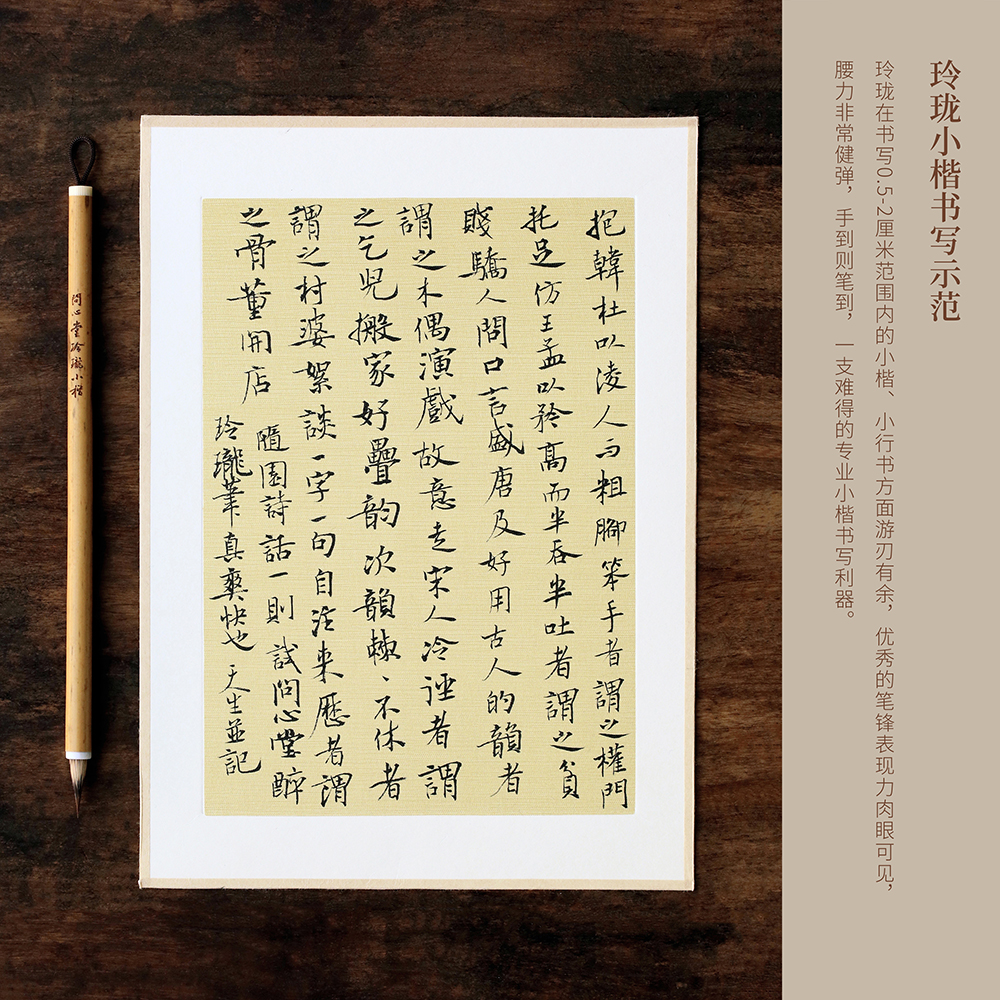 玲珑小楷书写示范
玲珑在书写0.5-2厘米范围内的小楷、小行书方面游刃有余，优秀的笔锋表现力肉眼可见，
腰力非常健弹，手到则笔到，一支难得的专业小楷书写利器。
抱韓杜以凌人而粗腳笨手者謂之權門
托足仿王孟以矜高而半吞半吐者謂之貧
賤驕人開口言盛唐及好用古人的韻者
謂之木偶演戲故意走宋人冷逕者謂
之乞兒搬家好疊韵次韻棘、不休者
謂之村婆絮談一字一句自注来歷者謂
之骨董開店
隨園詩話一則 試問心堂醉
玲瓏筆真爽快也 天生並記
問心堂玲瓏小楷